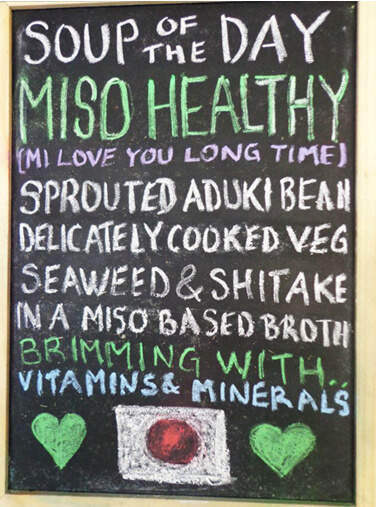 SOUP OF THE DAY
MISO HEALTHY
(MI LOVE YOU LONG TIME)
SPROUTED ADUKI BEAN
DELICATELY COOKED VEG
SEAWEED & SHITAKE
IN A MISO BASED BROTH
BRIMMING WITH..
VITAMINS & MINERALS